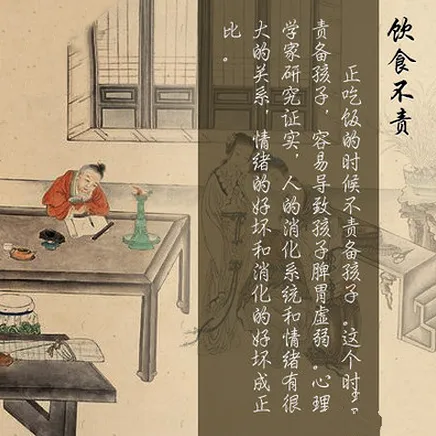 饮食不责
正吃饭的时候不责备孩子。这个时
责备孩子,容易导致孩子脾胃虚弱。心理
学家研究证实,人的消化系统和情绪有很
大的关系,情绪的好坏和消化的好坏成正
比。